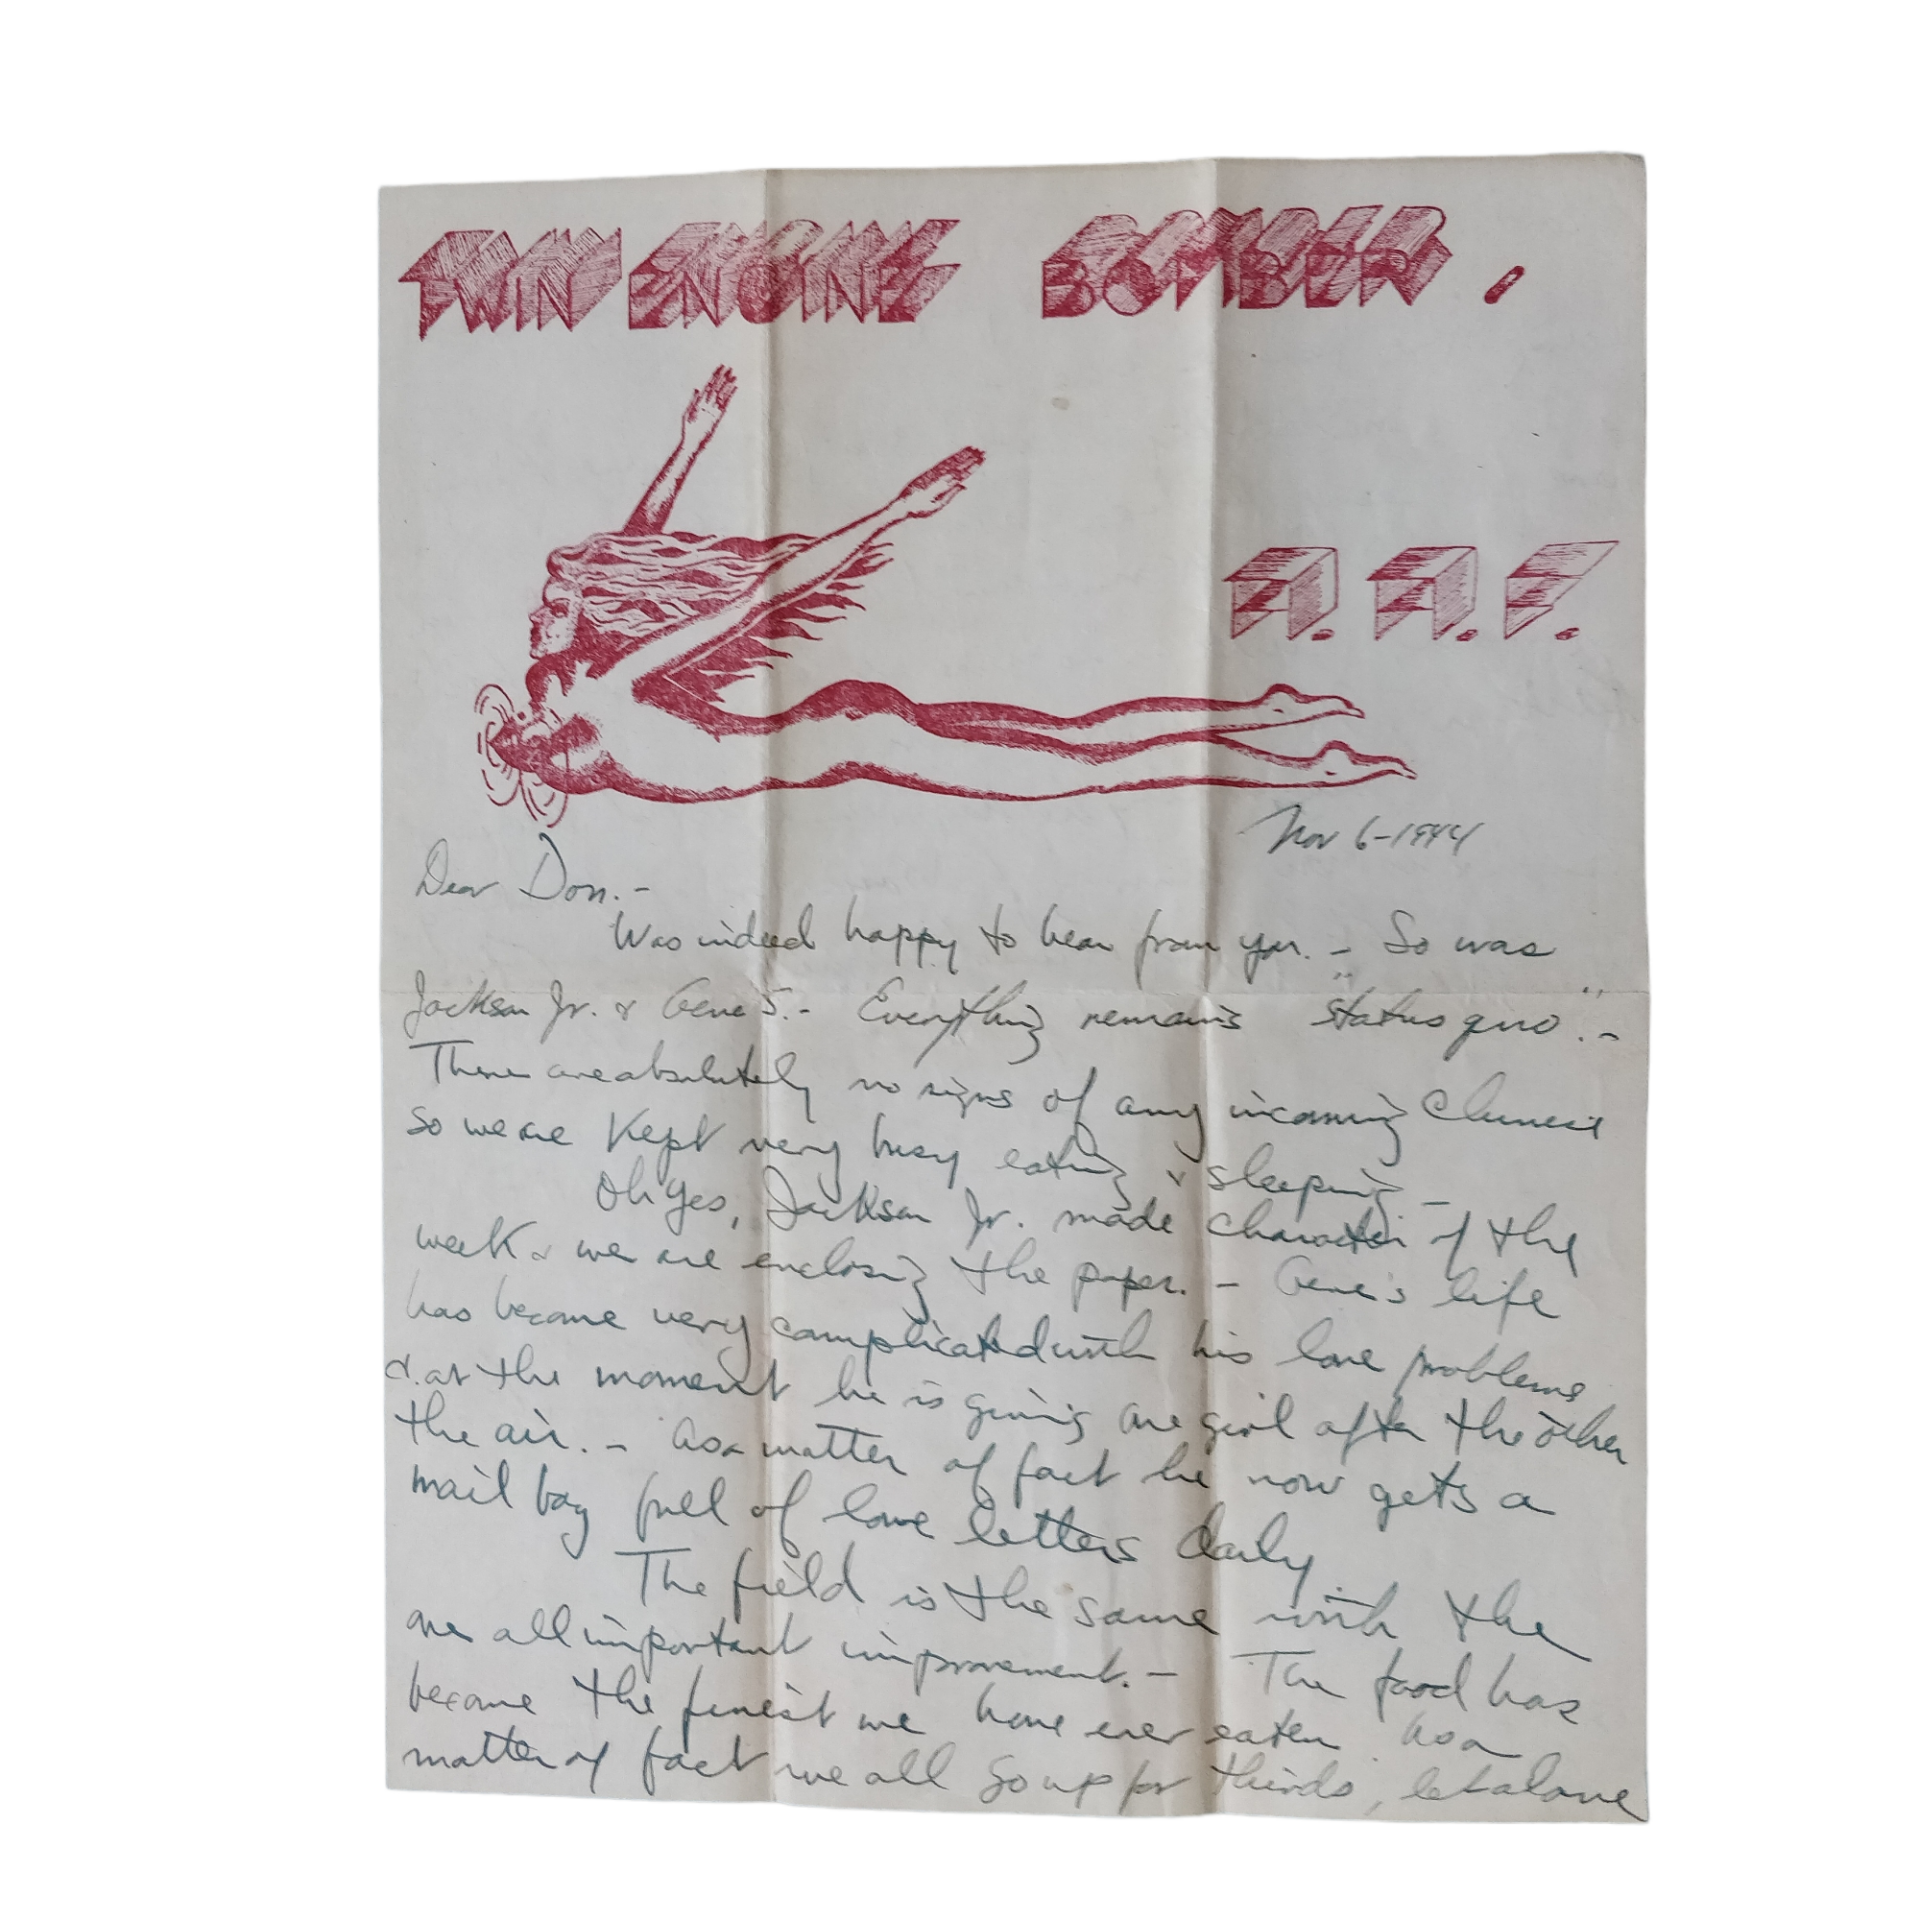 TWIN ENGINE BOMBER.
A. A. F.
Nov 6-1944
Dear Don.-
Was indeed happy to hear from you. - So was
Jackson Jr. & Gene S.- Everything remains "status quo".-
There are absolutely no signs of any incoming Chinese
so we are kept very busy eating & sleeping. -
Oh yes, Jackson Jr. made character of the
week & we are enclosing the paper. - Gene's life
has become very complicated with his love problems
& at the moment he is giving one girl after the other
the air. - As a matter of fact he now gets a
mail bag full of love letters daily
The field is the same with the
one all important improvement. - The food has
become the finest we have ever eaten. As a
matter of fact we all go up for thirds, let alone